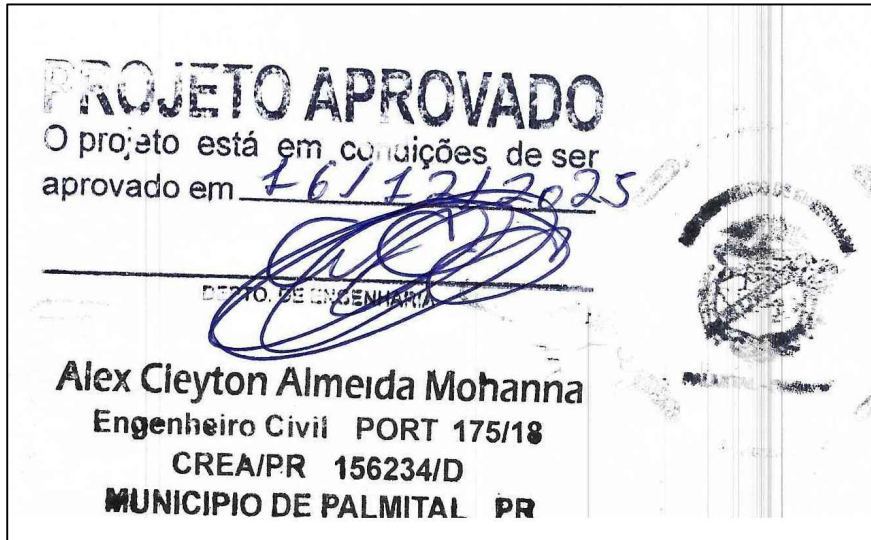 PROJETO APROVADO
O projeto está em condições de ser
aprovado em 16/12/2025
DEPTO. DE ENGENHARIA
Alex Cleyton Almeida Mohanna
Engenheiro Civil PORT 175/18
CREA/PR 156234/D
MUNICIPIO DE PALMITAL PR
PALMITAL - PARANÁ